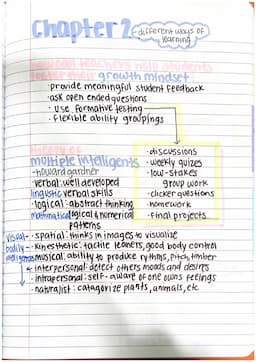 Chapter 2
different ways of learning
how can teachers help students
foster their growth mindset:
· provide meaningful student feedback
· ask open ended questions
· use formative testing
· flexible ability groupings
· discussions
· weekly quizes
· low-stakes
group work
· clicker questions
· homework
· final projects
theory of
multiple intelligents
-howard gardner
· verbal: well developed
linguistic verbal skills
· logical: abstract thinking
mathmatical logical & numerical
patterns
visual- · spatial: thinks in images to visualize
bodily - · kinesthetic: tactile learners, good body control
intelligence · musical: ability to produce rythms, pitch, timber
· interpersonal: detect others moods and desires
· intrapersonal: self-aware of one owns feelings
· naturalist: catagorize plants, animals, etc